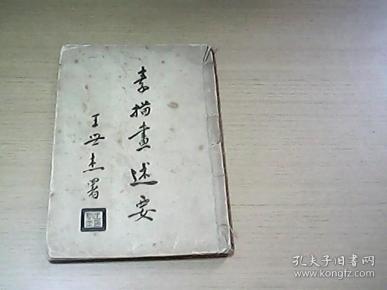 素描畫述要
王世杰署
孔夫子旧书网
www.kongfz.com